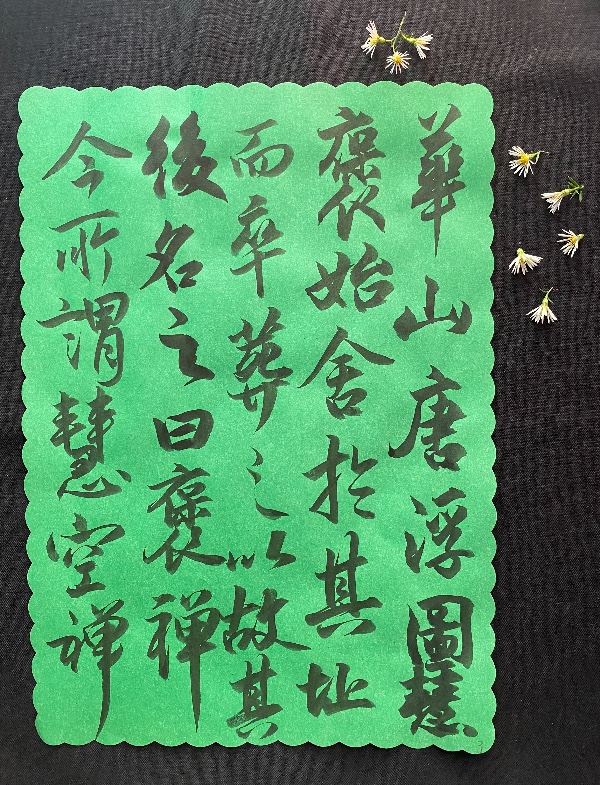 華山唐浮圖慧
褒始舍於其址
而卒葬之以故其
後名之曰褒禅
今所謂慧空禅